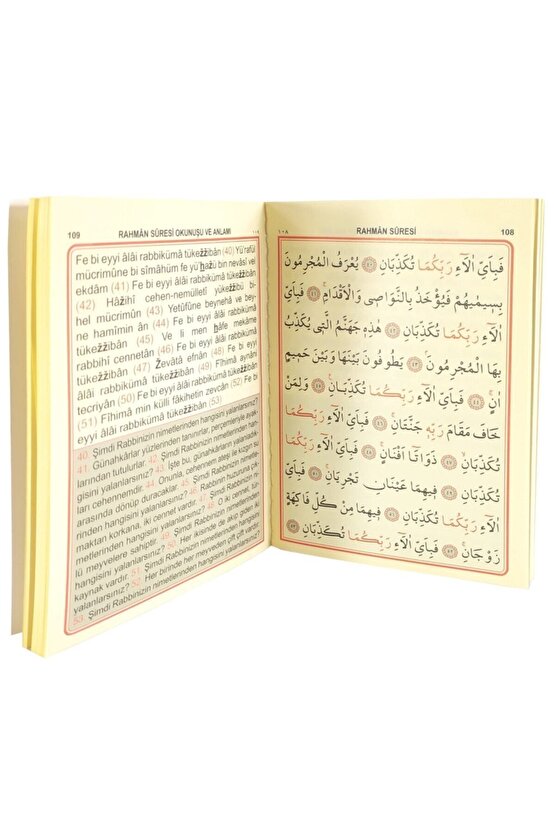 109 RAHMÂN SÛRESİ OKUNUŞU VE ANLAMI ١٠٩
Fe bi eyyi âlâi rabbikümâ tükežžibân (40) Yü'rafül
mücrimûne bi sîmâhüm fe yü'ḫažü bin nevâsî vel
ekdâm (41) Fe bi eyyi âlâi rabbikümâ tükežžibân
(42) Hâžihî cehen-nemülletî yükežžibü bi-
hel mücrimûn (43) Yetûfûne beynehâ ve bey-
ne hamîmin ân (44) Fe bi eyyi âlâi rabbikümâ
tükežžibân (45) Ve li men ḫâfe mekâme
rabbihî cennetân (46) Fe bi eyyi âlâi rabbikümâ
tükežžibân (47) Ževâtâ efnân (48) Fe bi eyyi
âlâi rabbikümâ tükežžibân (49) Fîhimâ aynâni
tecriyân (50) Fe bi eyyi âlâi rabbikümâ tükežžibân
(51) Fîhimâ min külli fâkihetin zevcân (52) Fe bi
eyyi âlâi rabbikümâ tükežžibân (53)
40. Şimdi Rabbinizin nimetlerinden hangisini yalanlarsınız?
41. Günahkârlar yüzlerinden tanınırlar, perçemleriyle ayak-
larından tutulurlar. 42. Şimdi Rabbinizin nimetlerinden han-
gisini yalanlarsınız? 43. İşte bu, günahkârların yalanladık-
ları cehennemdir. 44. Onunla, cehennem ateşi ile kızgın su
arasında dönüp duracaklar. 45. Şimdi Rabbinizin nimetle-
rinden hangisini yalanlarsınız? 46. Rabbının huzuruna çık-
maktan korkana, iki cennet vardır. 47. Şimdi Rabbinizin ni-
metlerinden hangisini yalanlarsınız? 48. O iki cennet, tür-
lü meyvelere sahiptir. 49. Şimdi Rabbinizin nimetlerinden
hangisini yalanlarsınız? 50. Her ikisinde de akıp giden iki
kaynak vardır. 51. Şimdi Rabbinizin nimetlerinden hangisini
yalanlarsınız? 52. Her birinde her meyveden çift çift vardır.
53. Şimdi Rabbinizin nimetlerinden hangisini yalanlarsınız?
١٠٨ RAHMÂN SÛRESİ 108
فَبِاَيِّ اٰلَٓاءِ رَبِّكُمَا تُكَذِّبَانِ ﴿٤٠﴾ يُعْرَفُ الْمُجْرِمُونَ
بِسِيمٰيهُمْ فَيُؤْخَذُ بِالنَّوَاصِي وَالْاَقْدَامِ ﴿٤١﴾ فَبِاَيِّ
اٰلَٓاءِ رَبِّكُمَا تُكَذِّبَانِ ﴿٤٢﴾ هٰذِهِ جَهَنَّمُ الَّتِي يُكَذِّبُ
بِهَا الْمُجْرِمُونَ ﴿٤٣﴾ يَطُوفُونَ بَيْنَهَا وَبَيْنَ حَمِيمٍ
اٰنٍ ﴿٤٤﴾ فَبِاَيِّ اٰلَٓاءِ رَبِّكُمَا تُكَذِّبَانِ ﴿٤٥﴾ وَلِمَنْ
خَافَ مَقَامَ رَبِّهِ جَنَّتَانِ ﴿٤٦﴾ فَبِاَيِّ اٰلَٓاءِ رَبِّكُمَا
تُكَذِّبَانِ ﴿٤٧﴾ ذَوَاتَٓا اَفْنَانٍ ﴿٤٨﴾ فَبِاَيِّ اٰلَٓاءِ رَبِّكُمَا
تُكَذِّبَانِ ﴿٤٩﴾ فِيهِمَا عَيْنَانِ تَجْرِيَانِ ﴿٥٠﴾ فَبِاَيِّ
اٰلَٓاءِ رَبِّكُمَا تُكَذِّبَانِ ﴿٥١﴾ فِيهِمَا مِنْ كُلِّ فَاكِهَةٍ
زَوْجَانِ ﴿٥٢﴾ فَبِاَيِّ اٰلَٓاءِ رَبِّكُمَا تُكَذِّبَانِ ﴿٥٣﴾